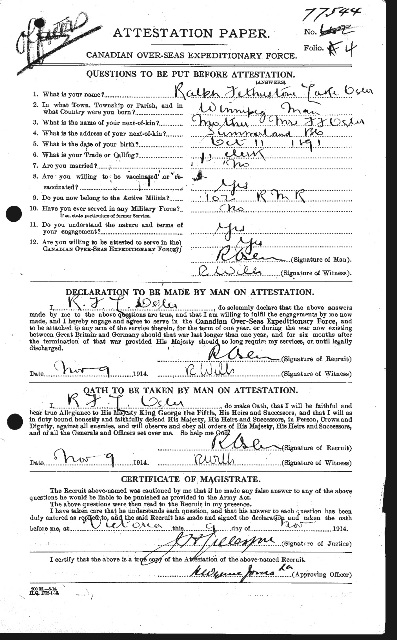 77544
ATTESTATION PAPER.
No.
Folio. 4
CANADIAN OVER-SEAS EXPEDITIONARY FORCE.
QUESTIONS TO BE PUT BEFORE ATTESTATION.
(ANSWERS)
1. What is your name? Ralph
2. In what Town, Township or Parish, and in what Country were you born? Winnipeg Man
3. What is the name of your next-of-kin? Mother Mrs
4. What is the address of your next-of-kin? Summerland BC
5. What is the date of your birth? Oct 11 1891
6. What is your Trade or Calling? Clerk
7. Are you married? No
8. Are you willing to be vaccinated or re-vaccinated? Yes
9. Do you now belong to the Active Militia? 102 R M R
10. Have you ever served in any Military Force? No
If so, state particulars of former Service.
11. Do you understand the nature and terms of your engagement? Yes
12. Are you willing to be attested to serve in the CANADIAN OVER-SEAS EXPEDITIONARY FORCE? Yes
(Signature of Man).
R Wills (Signature of Witness).
DECLARATION TO BE MADE BY MAN ON ATTESTATION.
I, R. F. T. , do solemnly declare that the above answers
made by me to the above questions are true, and that I am willing to fulfil the engagements by me now
made, and I hereby engage and agree to serve in the Canadian Over-Seas Expeditionary Force, and
to be attached to any arm of the service therein, for the term of one year, or during the war now existing
between Great Britain and Germany should that war last longer than one year, and for six months after
the termination of that war provided His Majesty should so long require my services, or until legally
discharged.
(Signature of Recruit)
Date Nov 9 1914. R Wills (Signature of Witness)
OATH TO BE TAKEN BY MAN ON ATTESTATION.
I, R F T , do make Oath, that I will be faithful and
bear true Allegiance to His Majesty King George the Fifth, His Heirs and Successors, and that I will as
in duty bound honestly and faithfully defend His Majesty, His Heirs and Successors, in Person, Crown and
Dignity, against all enemies, and will observe and obey all orders of His Majesty, His Heirs and Successors,
and of all the Generals and Officers set over me. So help me God.
(Signature of Recruit)
Date Nov 9 1914. R Wills (Signature of Witness)
CERTIFICATE OF MAGISTRATE.
The Recruit above-named was cautioned by me that if he made any false answer to any of the above
questions he would be liable to be punished as provided in the Army Act.
The above questions were then read to the Recruit in my presence.
I have taken care that he understands each question, and that his answer to each question has been
duly entered as replied to, and the said Recruit has made and signed the declaration and taken the oath
before me, at Victoria this 9 day of Nov 1914.
(Signature of Justice)
I certify that the above is a true copy of the Attestation of the above-named Recruit.
(Approving Officer)